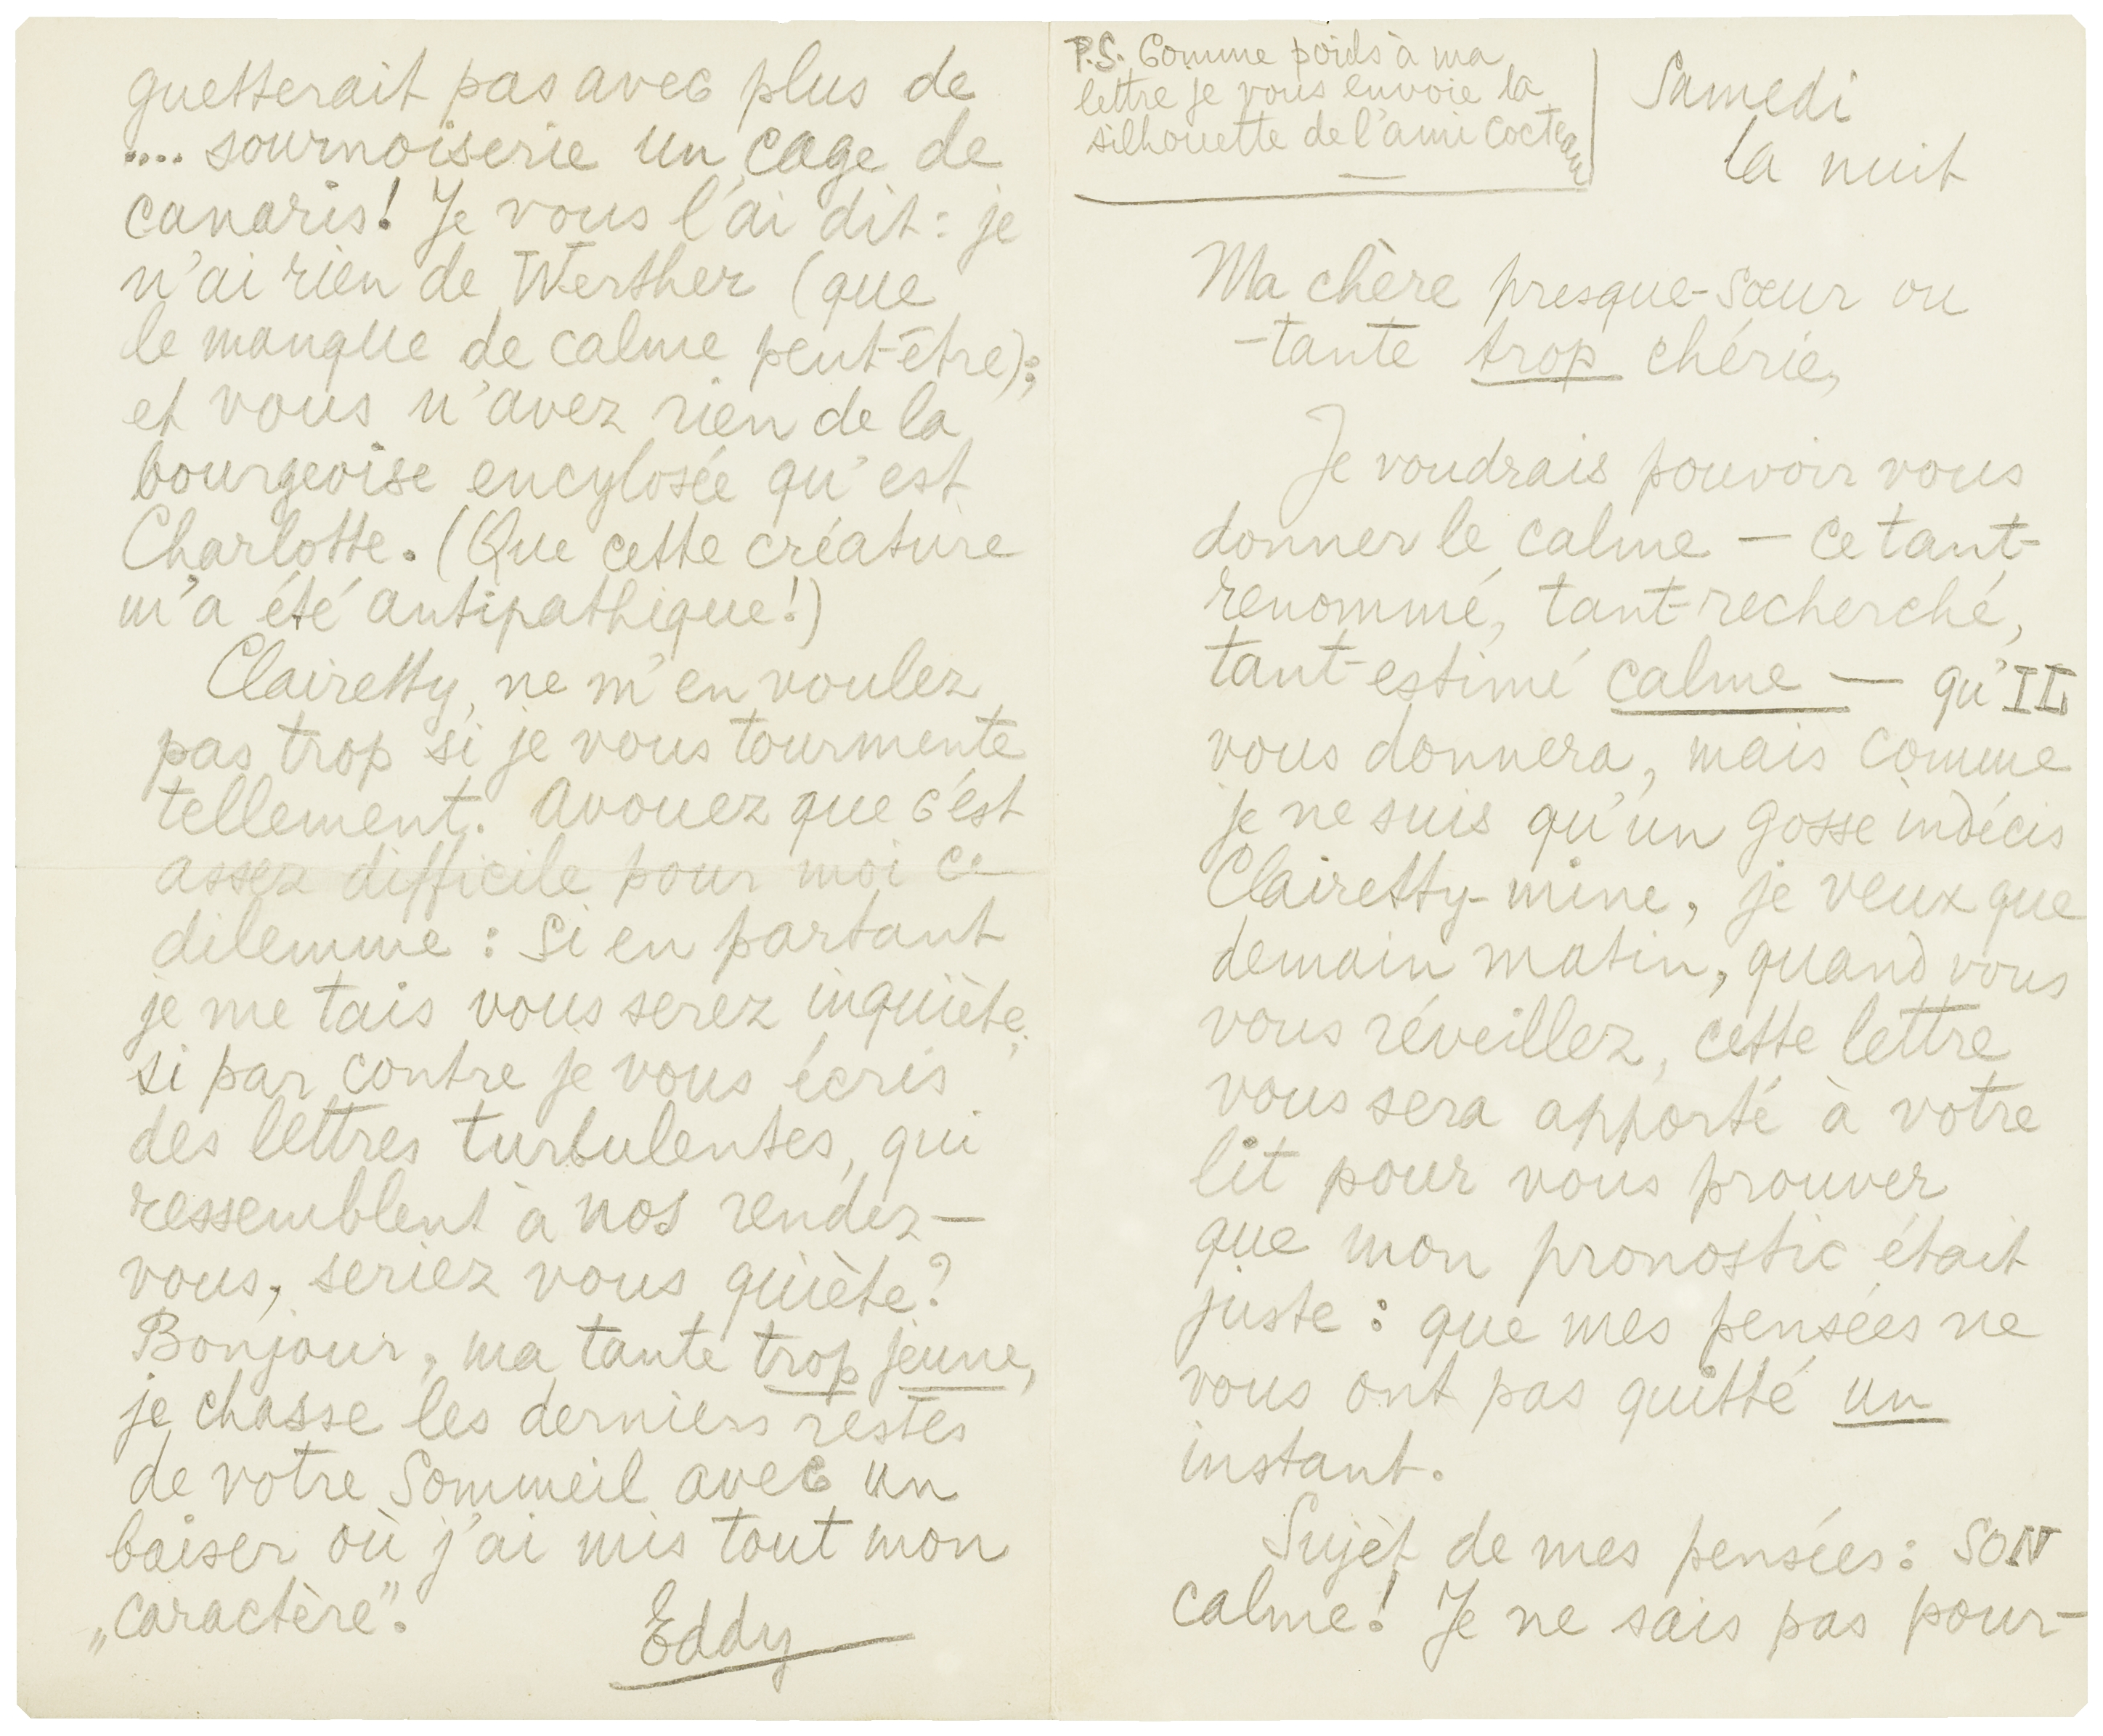 P.S. Comme poids à ma
lettre je vous envoie la
silhouette de l'ami Cocteau
Samedi
la nuit
Ma chère presque-sœur ou
-tante trop chérie,
Je voudrais pouvoir vous
donner le calme — ce tant-
renommé, tant-recherché,
tant-estimé calme — qu'IL
vous donnera, mais comme
je ne suis qu'un gosse indécis
Clairetty-mine, je veux que
demain matin, quand vous
vous réveillez, cette lettre
vous sera apporté à votre
lit pour vous prouver
que mon pronostic était
juste : que mes pensées ne
vous ont pas quitté un
instant.
Sujèt de mes pensées : SON
calme ! Je ne sais pas pour-
guetterait pas avec plus de
.... sournoiserie un cage de
canaris ! Je vous l'ai dit : je
n'ai rien de Werther (que
le manque de calme peut-être);
et vous n'avez rien de la
bourgeoise encylosée qu'est
Charlotte. (Que cette créature
m'a été antipathique !)
Clairetty, ne m'en voulez
pas trop si je vous tourmente
tellement. Avouez que c'est
assez difficile pour moi ce
dilemme : Si en partant
je me tais vous serez inquiète;
si par contre je vous écris
des lettres turbulentes, qui
ressemblent à nos rendez-
vous, seriez vous quiète ?
Bonjour, ma tante trop jeune,
je chasse les derniers restes
de votre Sommeil avec un
baiser où j'ai mis tout mon
„caractère".
Eddy